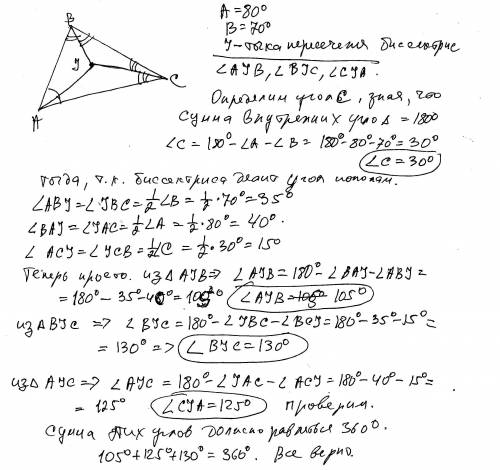 B
A = 80°
B = 70°
J - точка пересечения биссектрис
J
∠AJB, ∠BJC, ∠CJA.
C
A
Определим угол C, зная, что
сумма внутренних углов Δ = 180°
∠C = 180° - ∠A - ∠B = 180° - 80° - 70° = 30°
∠C = 30°
тогда, т.к. биссектриса делит угол пополам.
∠ABJ = ∠JBC = 1/2 ∠B = 1/2 · 70° = 35°
∠BAJ = ∠JAC = 1/2 ∠A = 1/2 · 80° = 40°.
∠ACJ = ∠JCB = 1/2 ∠C = 1/2 · 30° = 15°
Теперь просто. из Δ AJB => ∠AJB = 180° - ∠BAJ - ∠ABJ =
= 180° - 35° - 40° = 105° ∠AJB = 105°
из Δ BJC => ∠BJC = 180° - ∠JBC - ∠BCJ = 180° - 35° - 15° =
= 130° => ∠BJC = 130°
из Δ AJC => ∠AJC = 180° - ∠JAC - ∠ACJ = 180° - 40° - 15° =
= 125° ∠CJA = 125° проверим.
Сумма этих углов должна равняться 360°.
105° + 125° + 130° = 360°. Все верно.